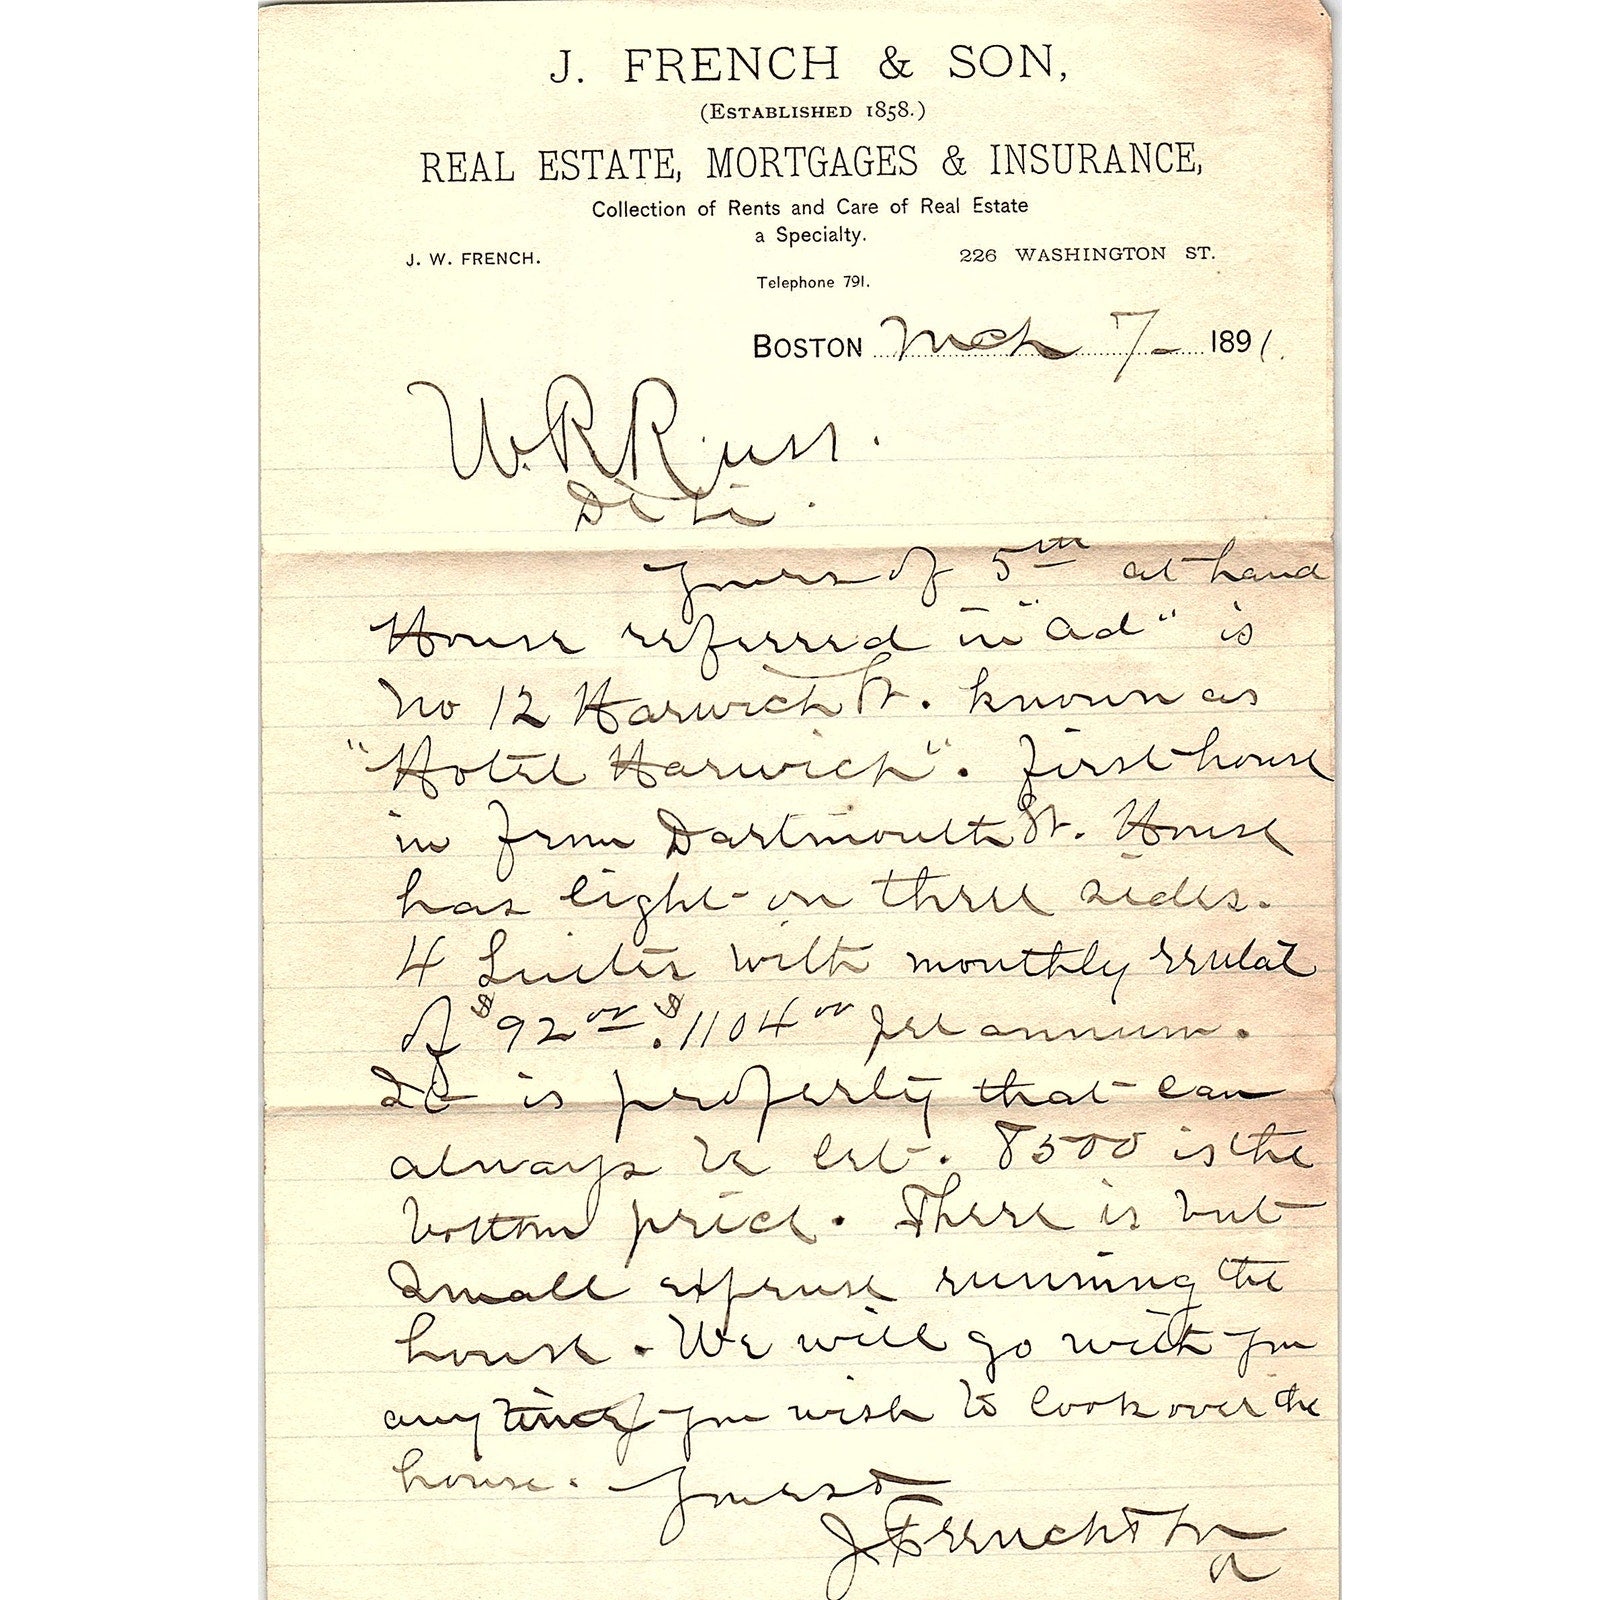 J. FRENCH & SON,
(ESTABLISHED 1858.)
REAL ESTATE, MORTGAGES & INSURANCE,
Collection of Rents and Care of Real Estate
a Specialty.
J. W. FRENCH.
226 WASHINGTON ST.
Telephone 791.
BOSTON Mch 7- 1891.
W. R. Russ.
D Sir.
Yours of 5th at hand
House referred in "ad" is
No 12 Harwich St. known as
"Hotel Harwich". first house
in from Dartmouth St. House
has light on three sides.
4 Suites with monthly rental
of $92 00. $1104 00 per annum.
It is property that can
always be let. 8500 is the
bottom price. There is but
small expense running the
house. We will go with you
any time you wish to look over the
house. Yours &
J French & Son